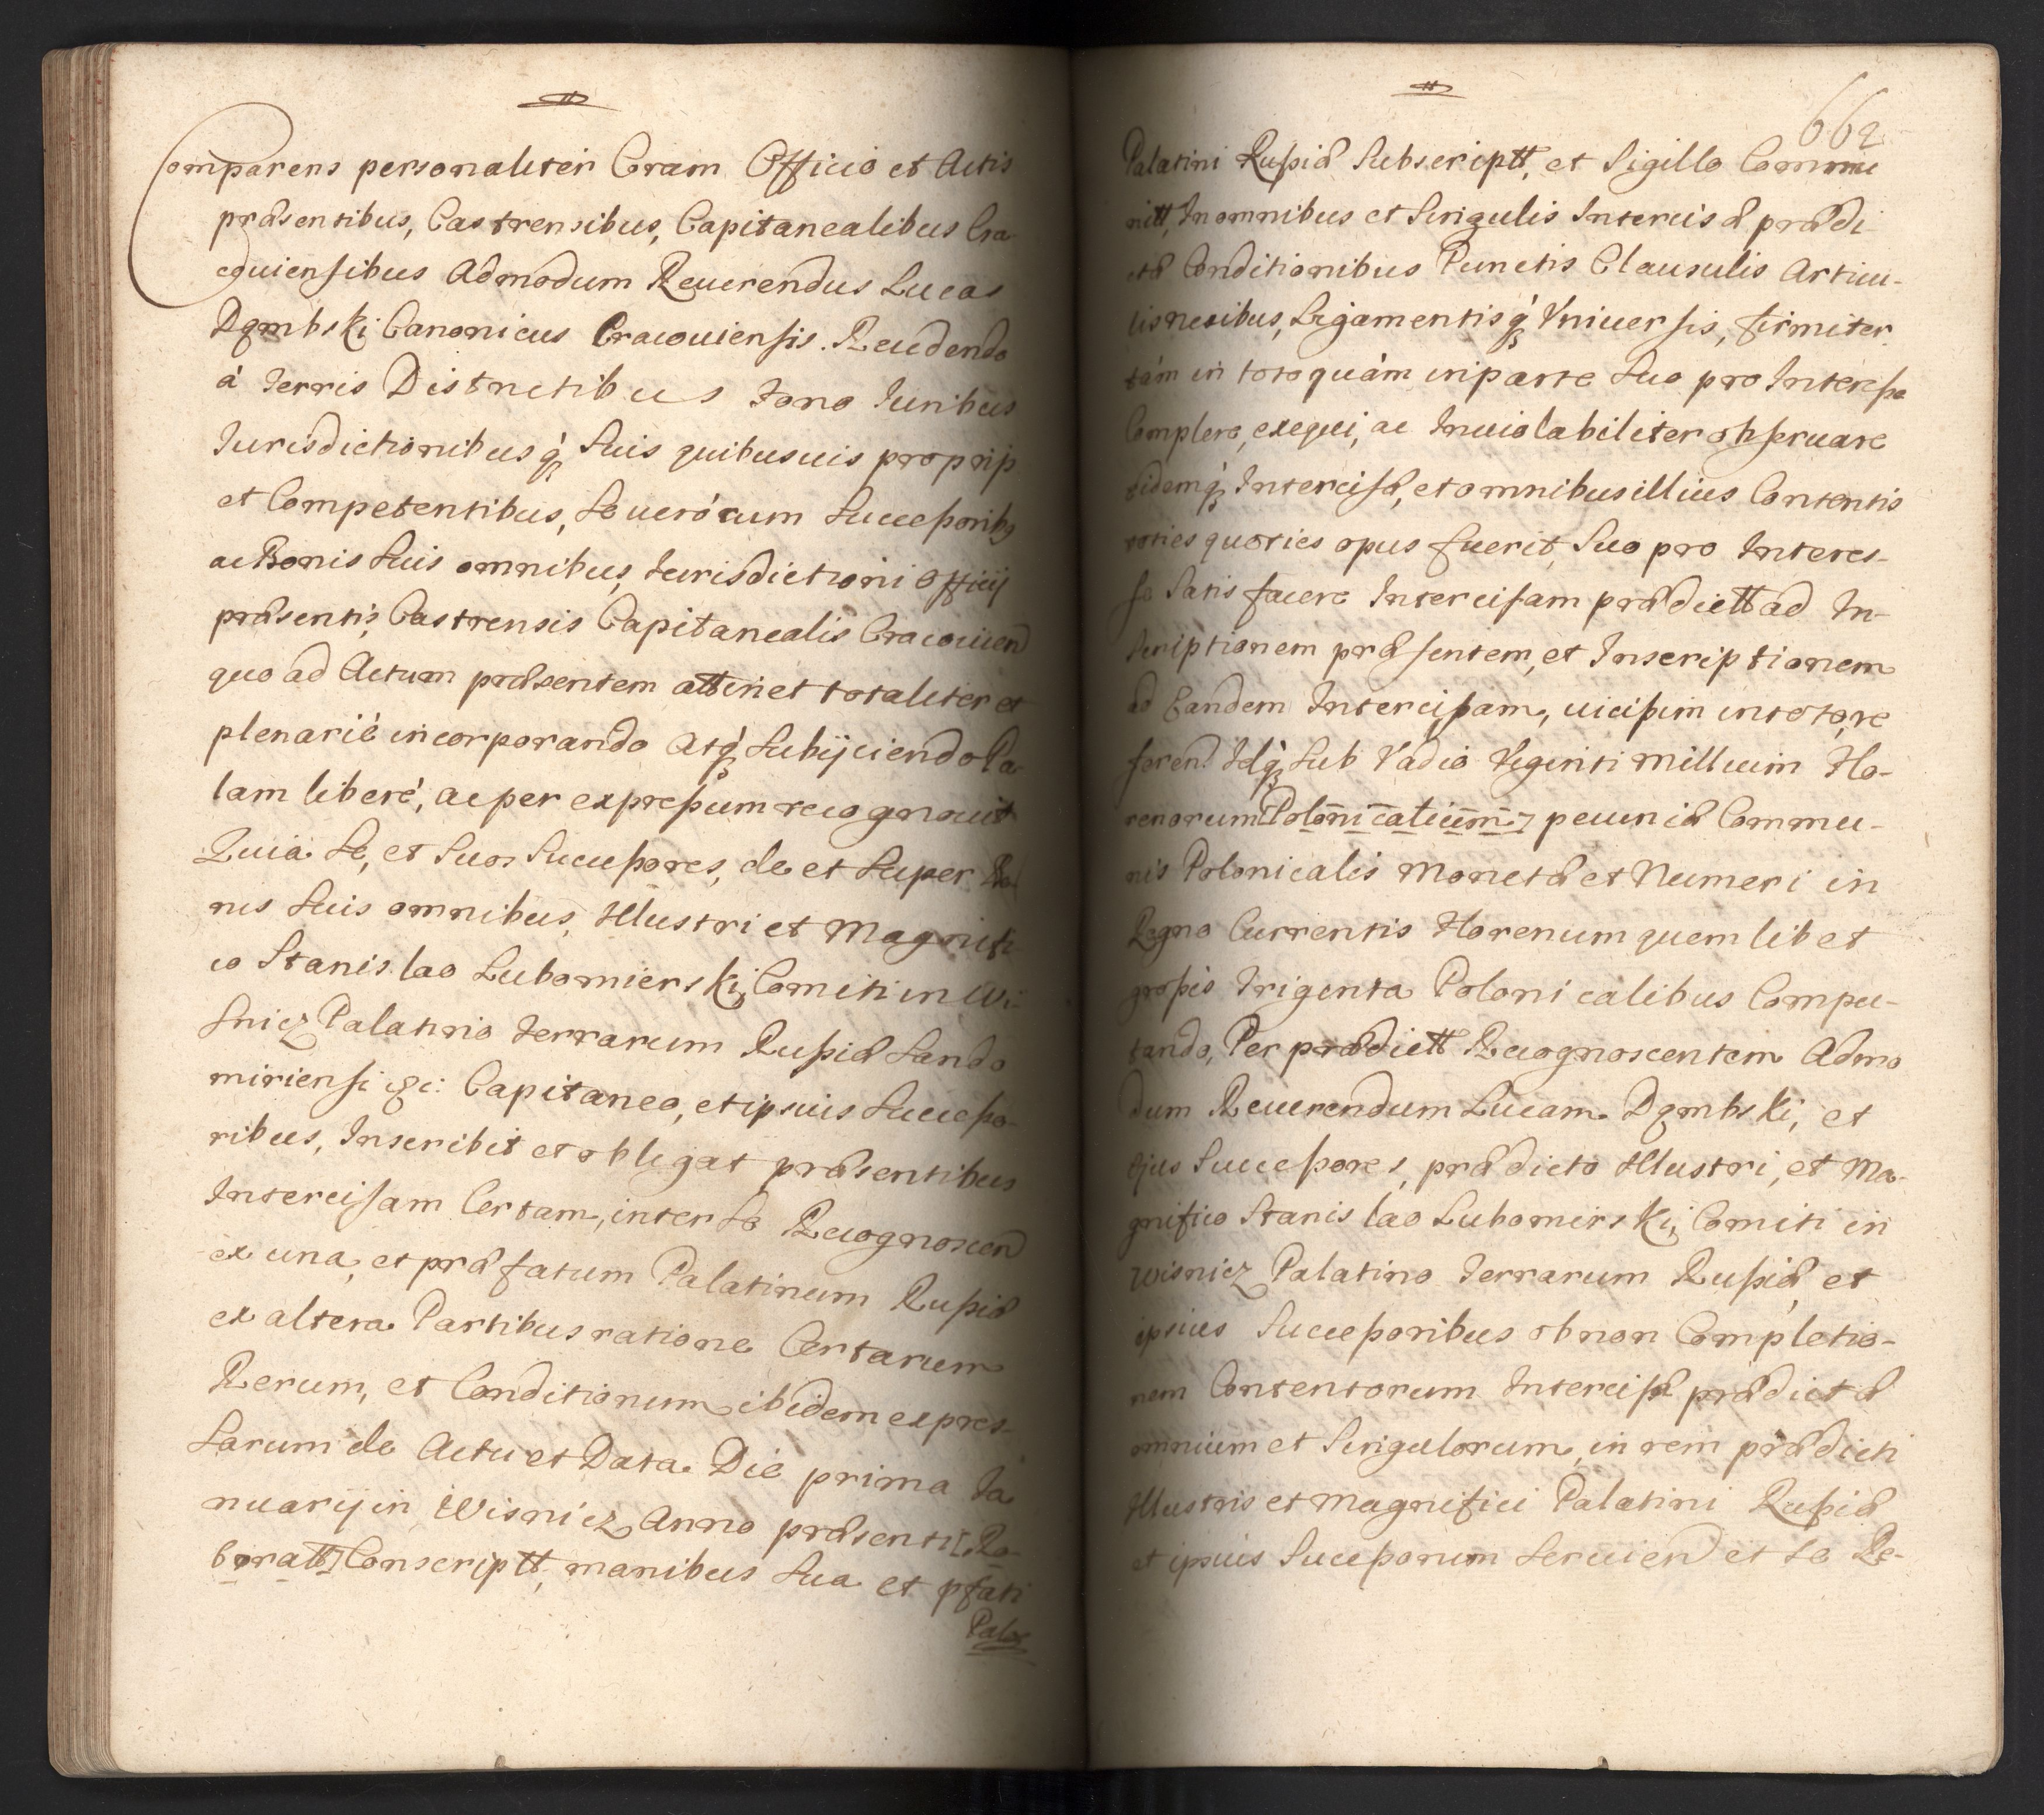 Comparens personaliter Coram Officio et Actis
præsentibus, Castrensibus, Capitanealibus Cra
couiensibus Admodum Reuerendus Lucas
Dąmbski Canonicus Cracouiensis. Recedendo
à Terris Districtibus Foro Iuribus
Iurisdictionibusq́ꝫ Suis quibusuis proprijs
et Competentibus, Se uerò cum Successoribꝰ
ac Bonis Suis omnibus, Iurisdictioni Officij
præsentis, Castrensis Capitanealis Cracouien
quo ad Actum præsentem attinet totaliter et
plenariè incorporando Atq́ꝫ Subijciendo Pa
lam liberè, ac per expressum recognouit
Quia Se, et Suos Successores, de et Super Bo
nis Suis omnibus, Illustri et Magnifi
co Stanislao Lubomierski, Comiti in Wi
snicz Palatino Terrarum Russiæ Sando
miriensi &c: Capitaneo, et ipsius Successo
ribus, Inscribit et obligat præsentibus
Intercisam Certam, inter Se Recognoscen
ex una, et præfatum Palatinum Russiæ
ex altera Partibus ratione Certarum
Rerum, et Conditionum ibidem expres
Sarum de Actu et Data Die prima Ia
nuarij in Wisnicz Anno præsenti [Ro
boratt] Conscriptt, manibus Sua et pfati
Palat
662
Palatini Russiæ Subscriptt, et Sigillo Commu
nitt, In omnibus et Singulis Intercisæ prædi
ctæ Conditionibus Punctis Clausulis Articu-
lis nexibus, Ligamentisq́ꝫ Vniuersis, firmiter
tàm in toto quàm in parte Suo pro Interesse
Complere, exequi, ac Inuiolabiliter obseruare
eidemq́ꝫ Intercisæ, et omnibus illius Contentis
toties quoties opus fuerit, Suo pro Interes-
se Satis facere Intercisam prædictt ad In-
scriptionem præsentem, et Inscriptionem
ad Eandem Intercisam, uicissim in toto re
feren. Idq́ꝫ Sub Vadio Viginti Millium Flo-
renorum [Polonicalium] pecuniæ Commu-
nis Polonicalis Monetæ et Numeri in
Regno Currentis Florenum quemlibet
grossis Triginta Polonicalibus Compu-
tando, Per prædictt Recognoscentem Admo
dum Reuerendum Lucam Dąmbski, et
Ejus Successores, prædicto Illustri, et Ma-
gnifico Stanislao Lubomirski, Comiti in
Wisnicz Palatino Terrarum Russiæ, et
ipsius Successoribus ob non Completio-
nem Contentorum Intercisæ prædictæ
omnium et Singulorum, in rem prædicti
Illustris et Magnifici Palatini Russiæ
et ipsius Successorum Seruien et Se Re-